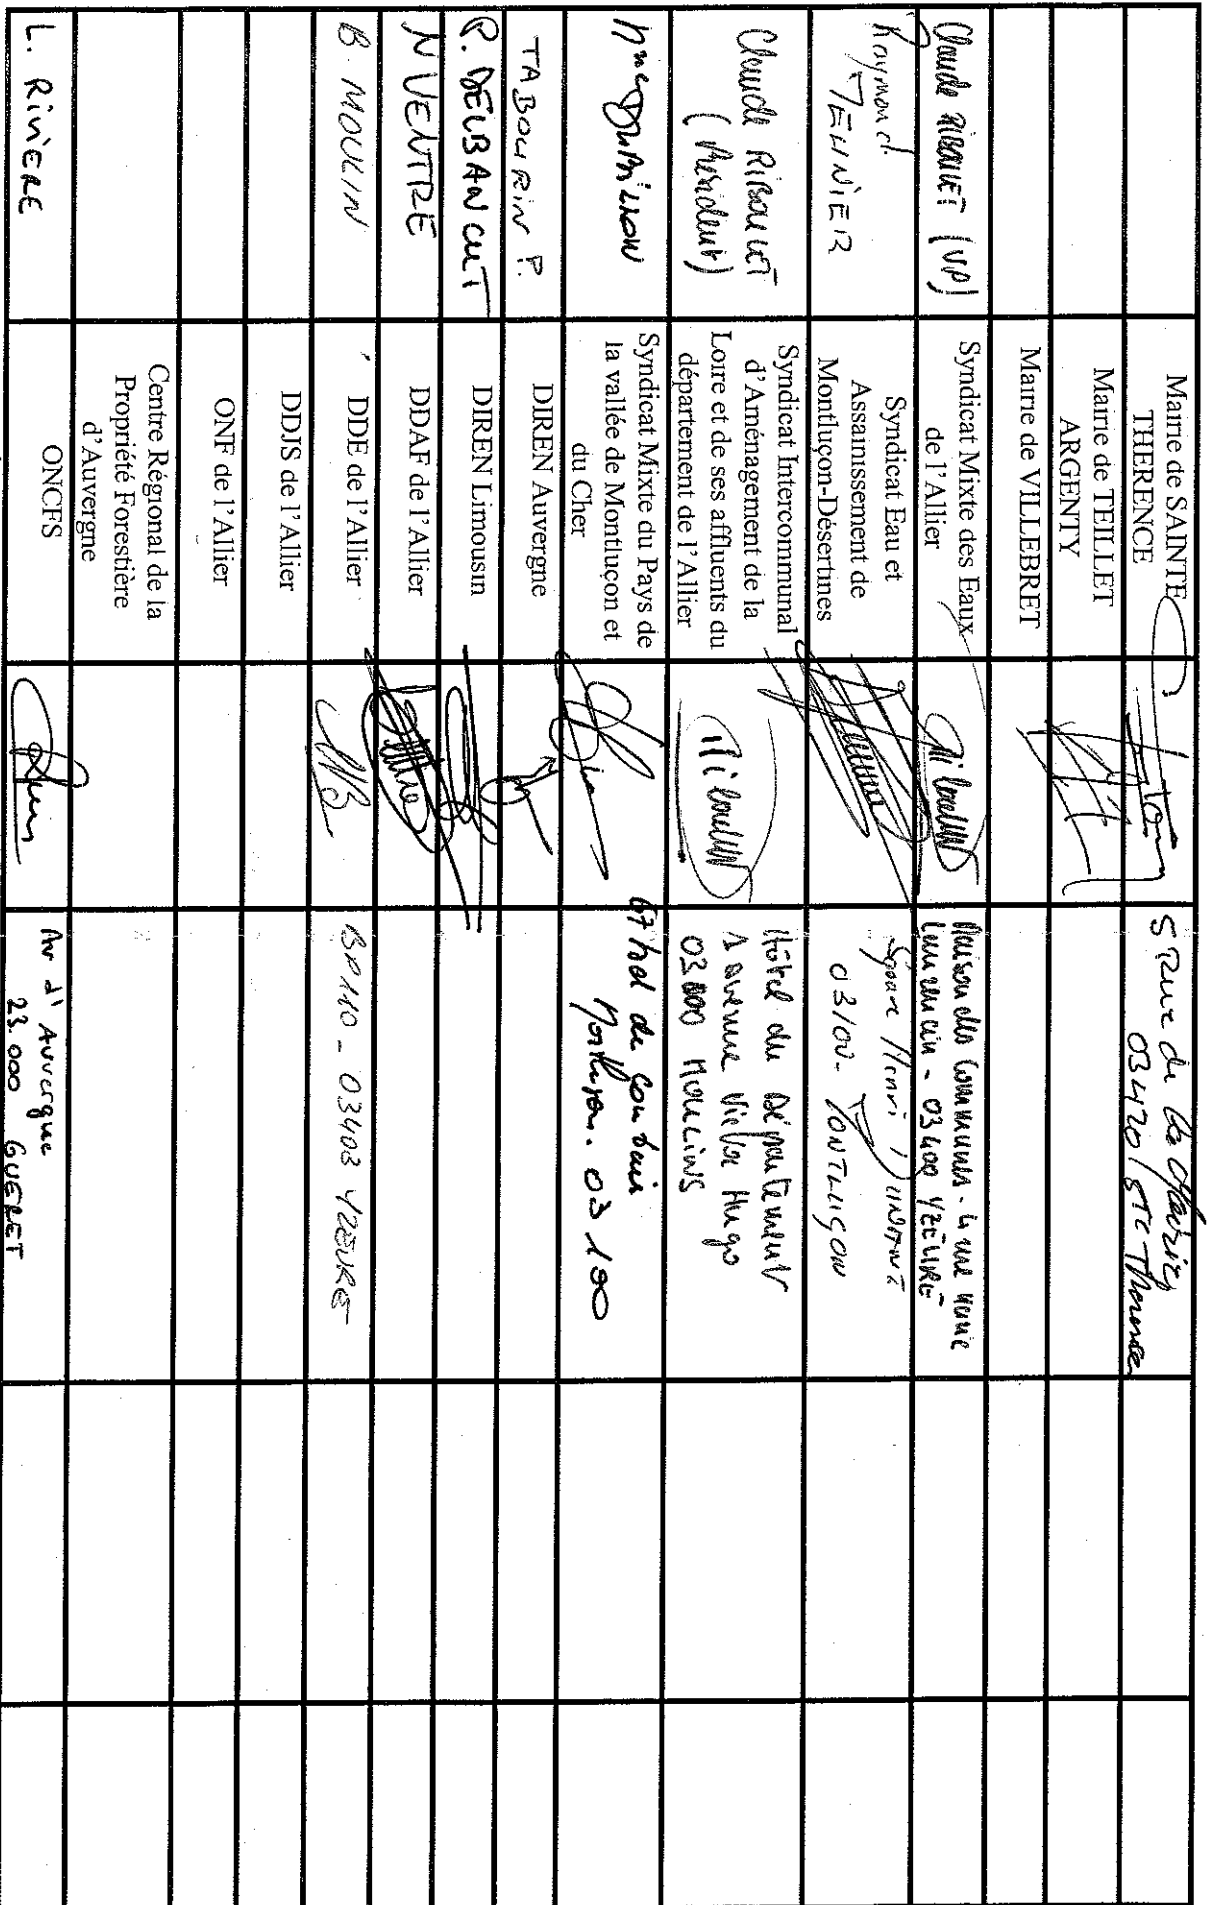 Mairie de SAINTE
THERENCE
5 Rue de la Mairie
03420 Ste Therence
Mairie de TEILLET
ARGENTY
Mairie de VILLEBRET
Claude RIBOULET (VP)
Syndicat Mixte des Eaux
de l'Allier
03400 YZEURE
Raymond
Syndicat Eau et
Assainissement de
Montluçon-Désertines
Square Henri DUNANT
03100 - MONTLUÇON
Claude RIBOULET
(Président)
Syndicat Intercommunal
d'Aménagement de la
Loire et de ses affluents du
département de l'Allier
Hôtel du Département
1 avenue Victor Hugo
03000 MOULINS
Syndicat Mixte du Pays de
la vallée de Montluçon et
du Cher
67 bd de Courtais
Montluçon. 03100
TABOURIN P.
DIREN Auvergne
P. DELBANCUT
DIREN Limousin
N VENTRE
DDAF de l'Allier
B. MOULIN
DDE de l'Allier
BP 110 - 03403 YZEURE
DDJS de l'Allier
ONF de l'Allier
Centre Régional de la
Propriété Forestière
d'Auvergne
L. RIVIERE
ONCFS
Av d'Auvergne
23.000 GUERET